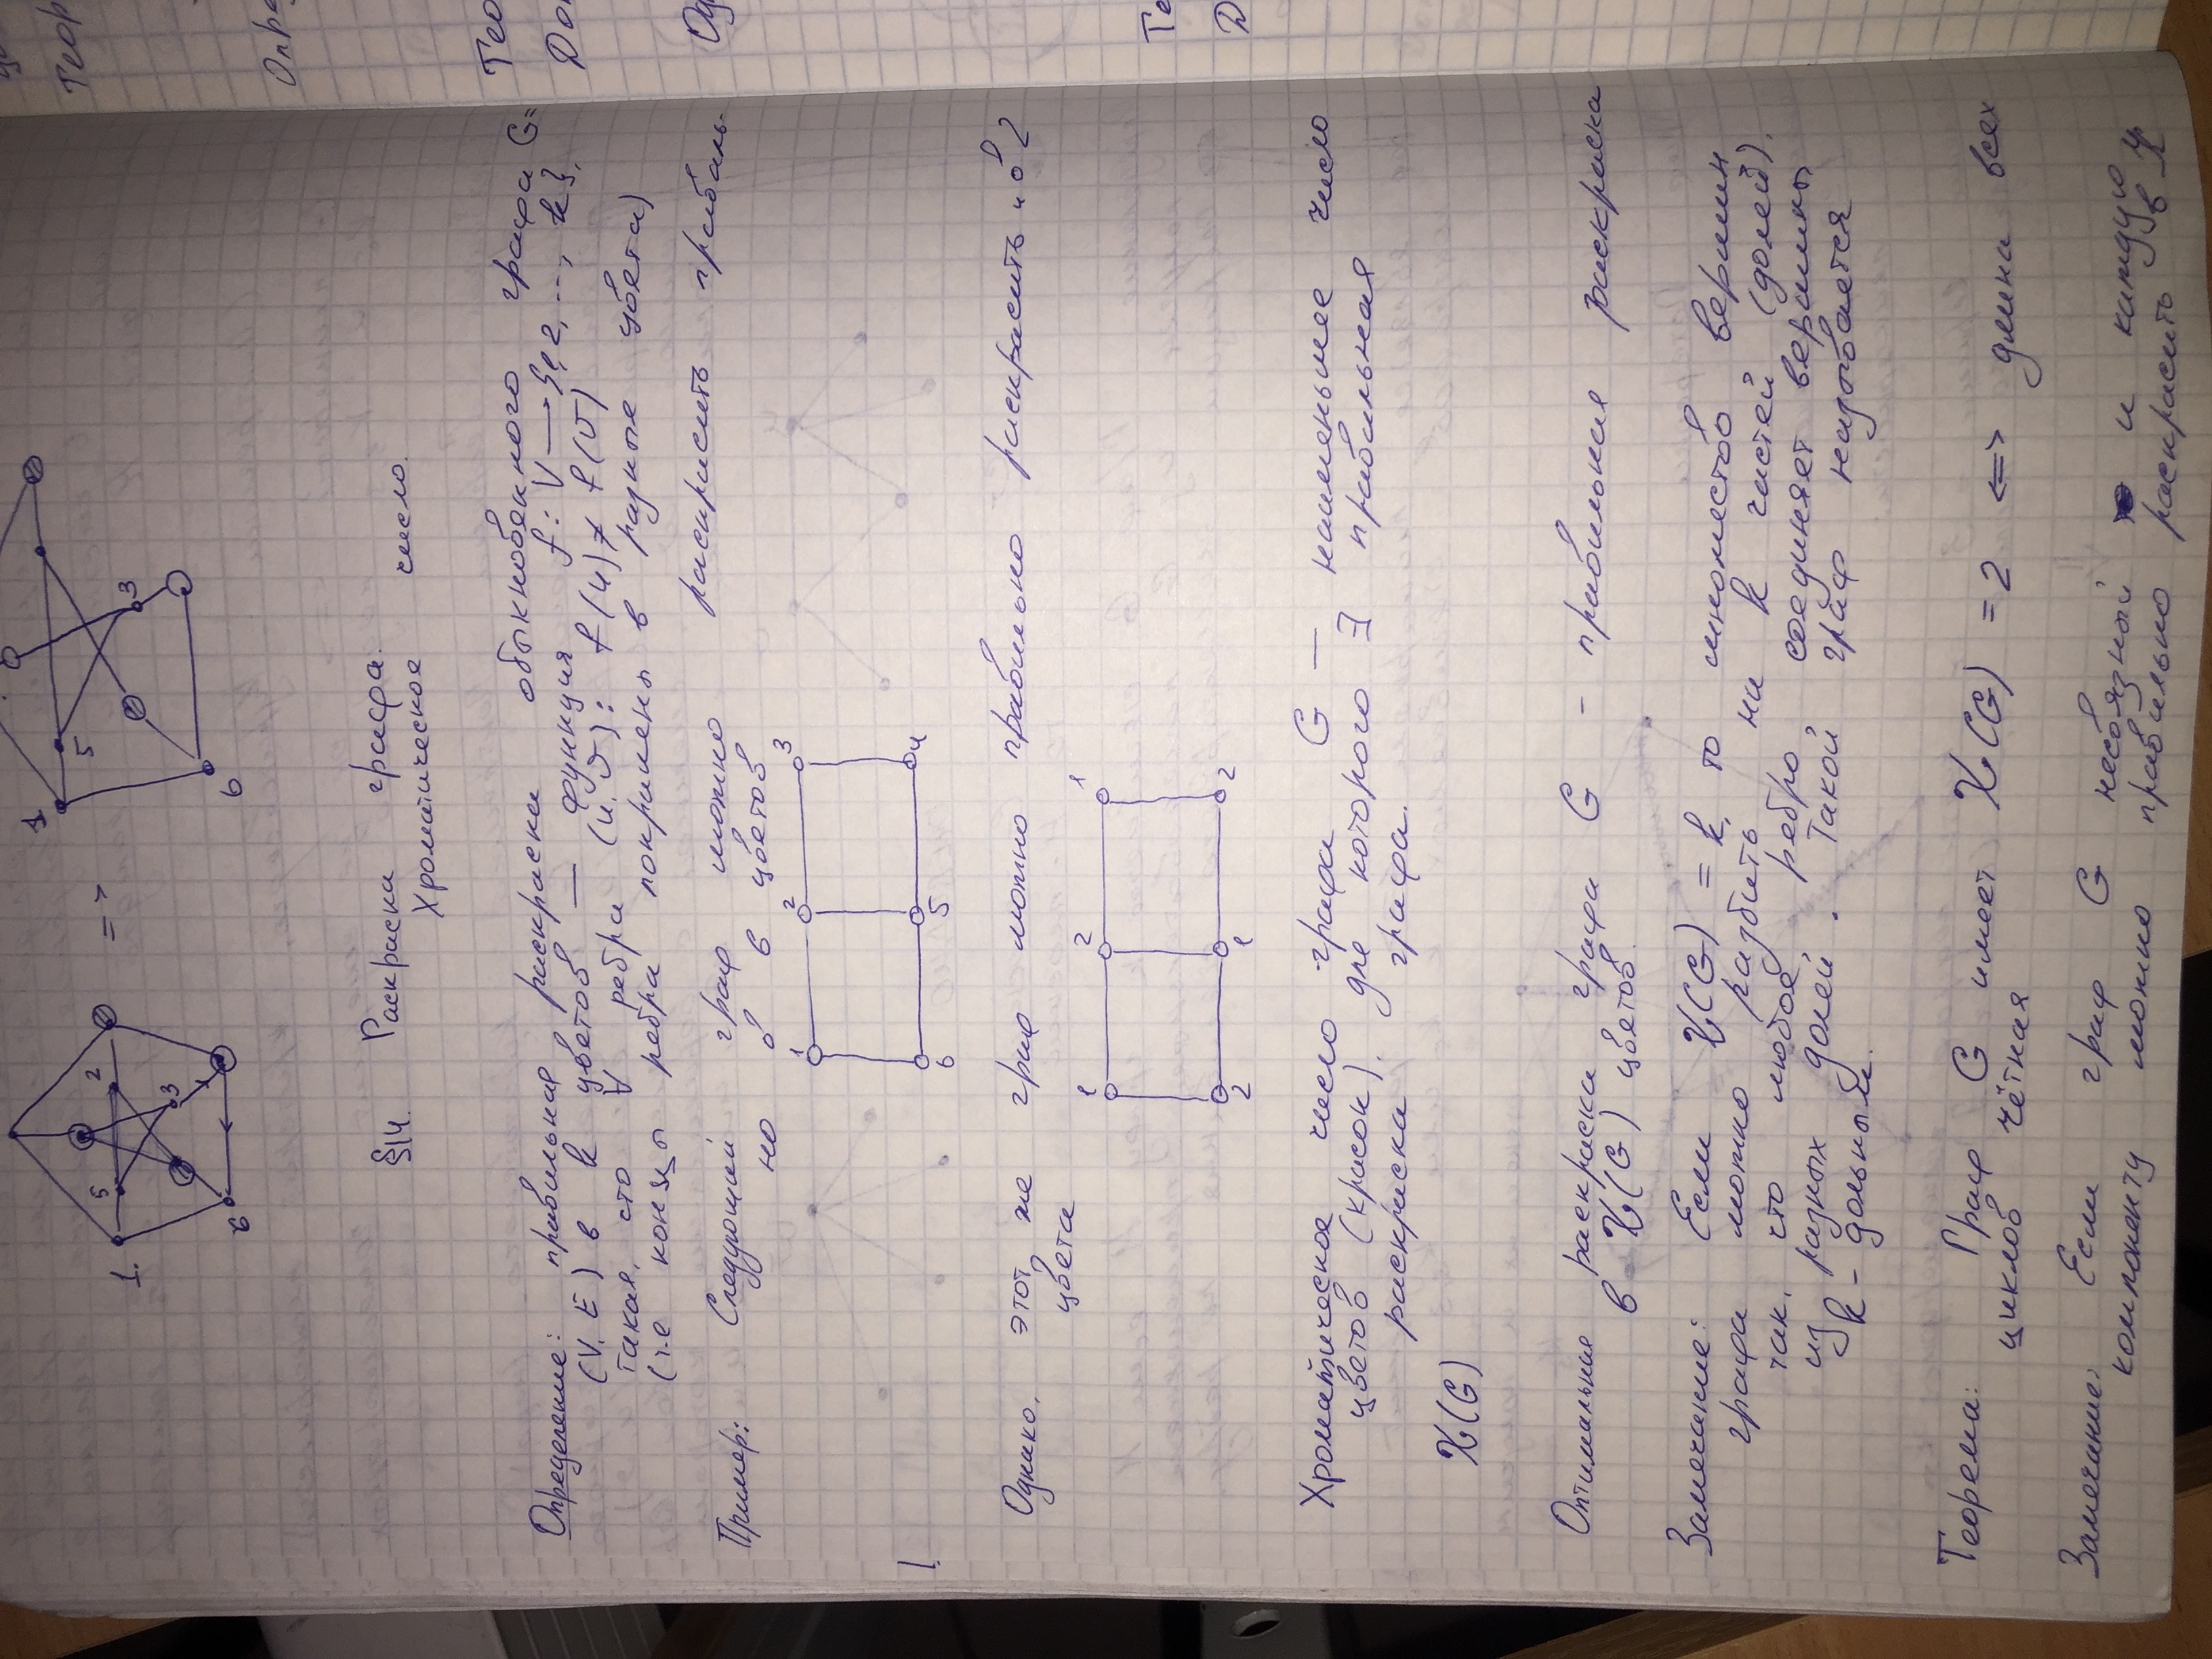 1. 5 2
3
6
=>
1
5
3
6
§14. Раскраска графа.
Хроматическое число.
Определение: правильная раскраска обыкновенного графа G=
(V, E) в k цветов — функция f: V → {1, 2, ..., k},
такая, сто ∀ ребра (u, v): f(u) ≠ f(v)
(т.е концы ребра покрашены в разные цвета)
Пример: Следующий граф можно раскрасить правиль-
но в 6 цветов
1 2 3
6 5 4
!
Однако, этот же граф можно правильно раскрасить и в 2
цвета
1 2 1
2 1 2
Хроматическое число графа G — наименьшее число
цветов (красок), для которого ∃ правильная
раскраска графа.
χ(G)
Оптимальная раскраска графа G - правильная раскраска
в χ(G) цветов.
Замечание: Если χ(G) = k, то множество вершин
графа можно разбить на k частей (долей),
так, что любое ребро соединяет вершины
из разных долей. Такой граф называется
k - дольным.
Теорема: Граф G имеет χ(G) = 2 <=> длина всех
циклов чётная
Замечание: Если граф G несвязный и каждую
компоненту можно правильно раскрасить в
Теор
Опре
Тео
До
Од
Те
Д